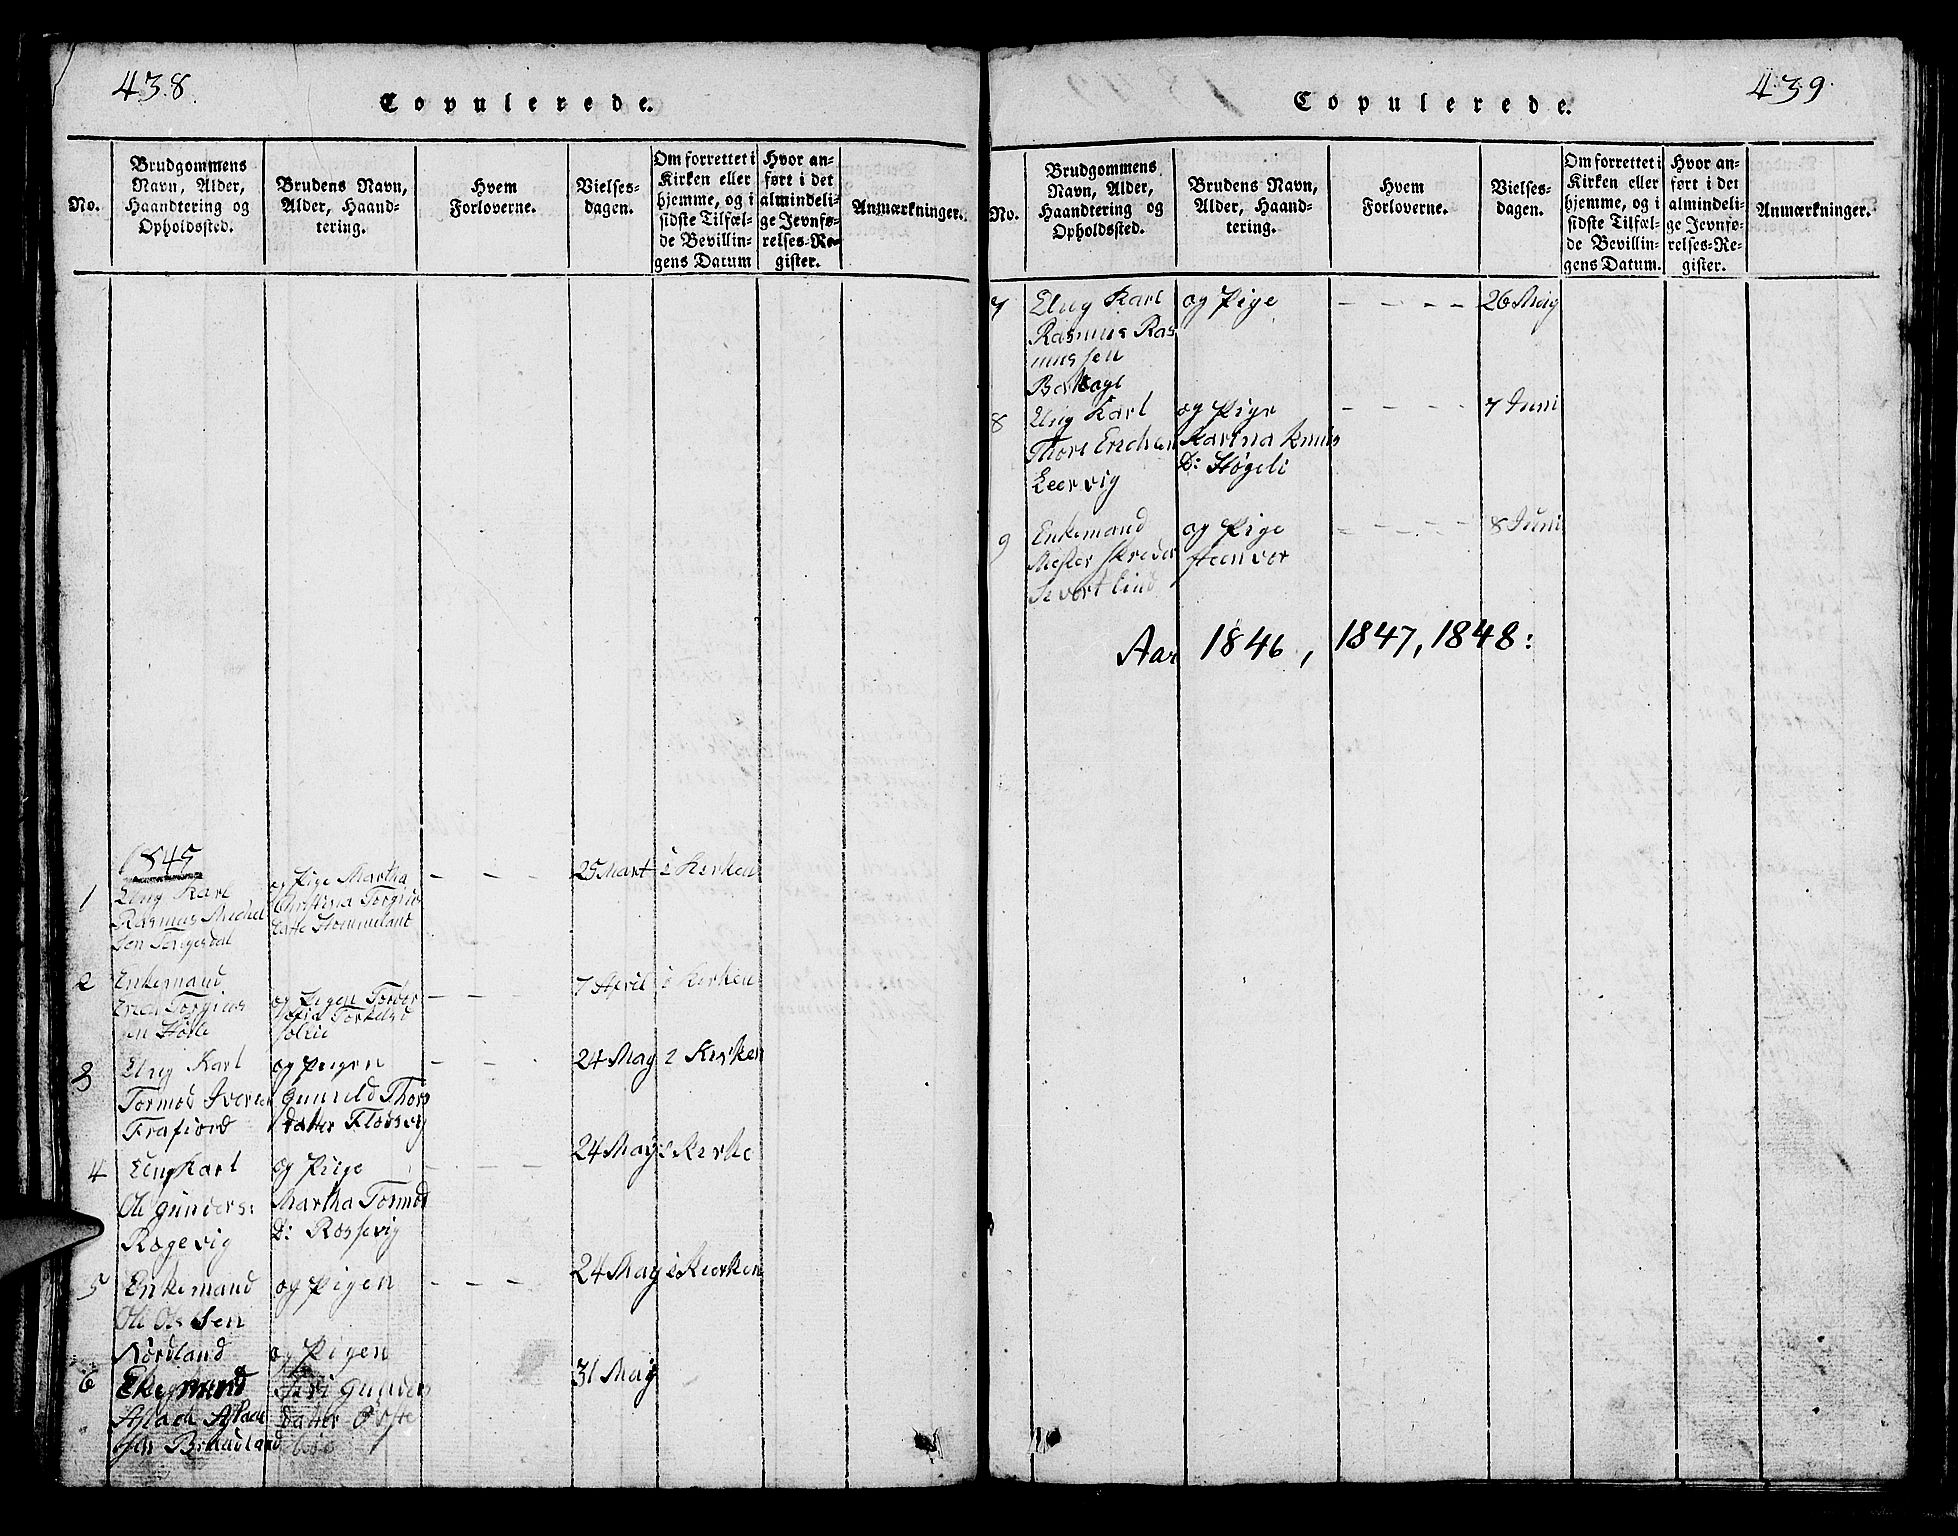 438.
Copulerede.
No.
Brudgommens
Navn, Alder,
Haandtering og
Opholdssted.
Brudens Navn,
Alder, Haand-
tering.
Hvem
Forloverne.
Vielses-
dagen.
Om forrettet i
Kirken eller
hjemme, og i
sidste Tilfæl-
de Bevillin-
gens Datum
Hvor an-
ført i det
almindeli-
ge Jevnfø-
relses-Re-
gister.
Anmærkninger.
1845
1
Ung Karl
Rasmus Michel
sen Tengesdal
og Pige Martha
Christina Torgius
Datte Hommelant
25 Mart
i Kirken
2
Enkemand
Erich Torgius
sen Hôsle
og Pigen
Torkelsd
7 April
i Kirken
3
Ung Karl
Tormod Iversen
Frafiord
og Pigen
Gunild Thors
datter Flodsvig
24 May
i Kirken
4
Ung Karl
Ole Gunders:
Rægevig
og Piige
Martha Tormod
D: Rossevig
24 May
i Kirke
5
Enkemand
Ole Olsen
Nordland
og Pigen
24 May
i Kierken
6
Ekemand
Aslach Aslach
sen Brudland
og Pigen
Siri Gunders
datter
31 May
439.
Copulerede.
No.
Brudgommens
Navn, Alder,
Haandtering og
Opholdssted.
Brudens Navn,
Alder, Haand-
tering.
Hvem
Forloverne.
Vielses-
dagen.
Om forrettet i
Kirken eller
hjemme, og i
sidste Tilfæl-
de Bevillin-
gens Datum.
Hvor an-
ført i det
almindeli-
ge Jevnfø-
relses-Re-
gister.
Anmærkninger.
7
Ung Karl
Rasmus Ras
mussen
og Pige
26 May
8
Ung Karl
Thore Erichsen
Leervig
og Pige
Karina Knus
D: Høgeli
7 Juni
9
Enkemand
Mester skreder
Sivert Lind
og Pige
steenvor
8 Juni
Aar 1846, 1847, 1848: